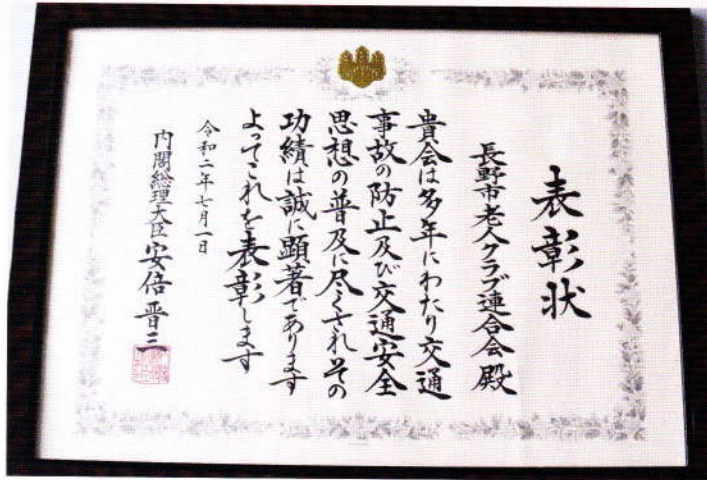 表彰状
長野市老人クラブ連合会殿
貴会は多年にわたり交通
事故の防止及び交通安全
思想の普及に尽くされその
功績は誠に顕著であります
よってこれを表彰します
令和二年七月一日
内閣総理大臣 安倍晋三